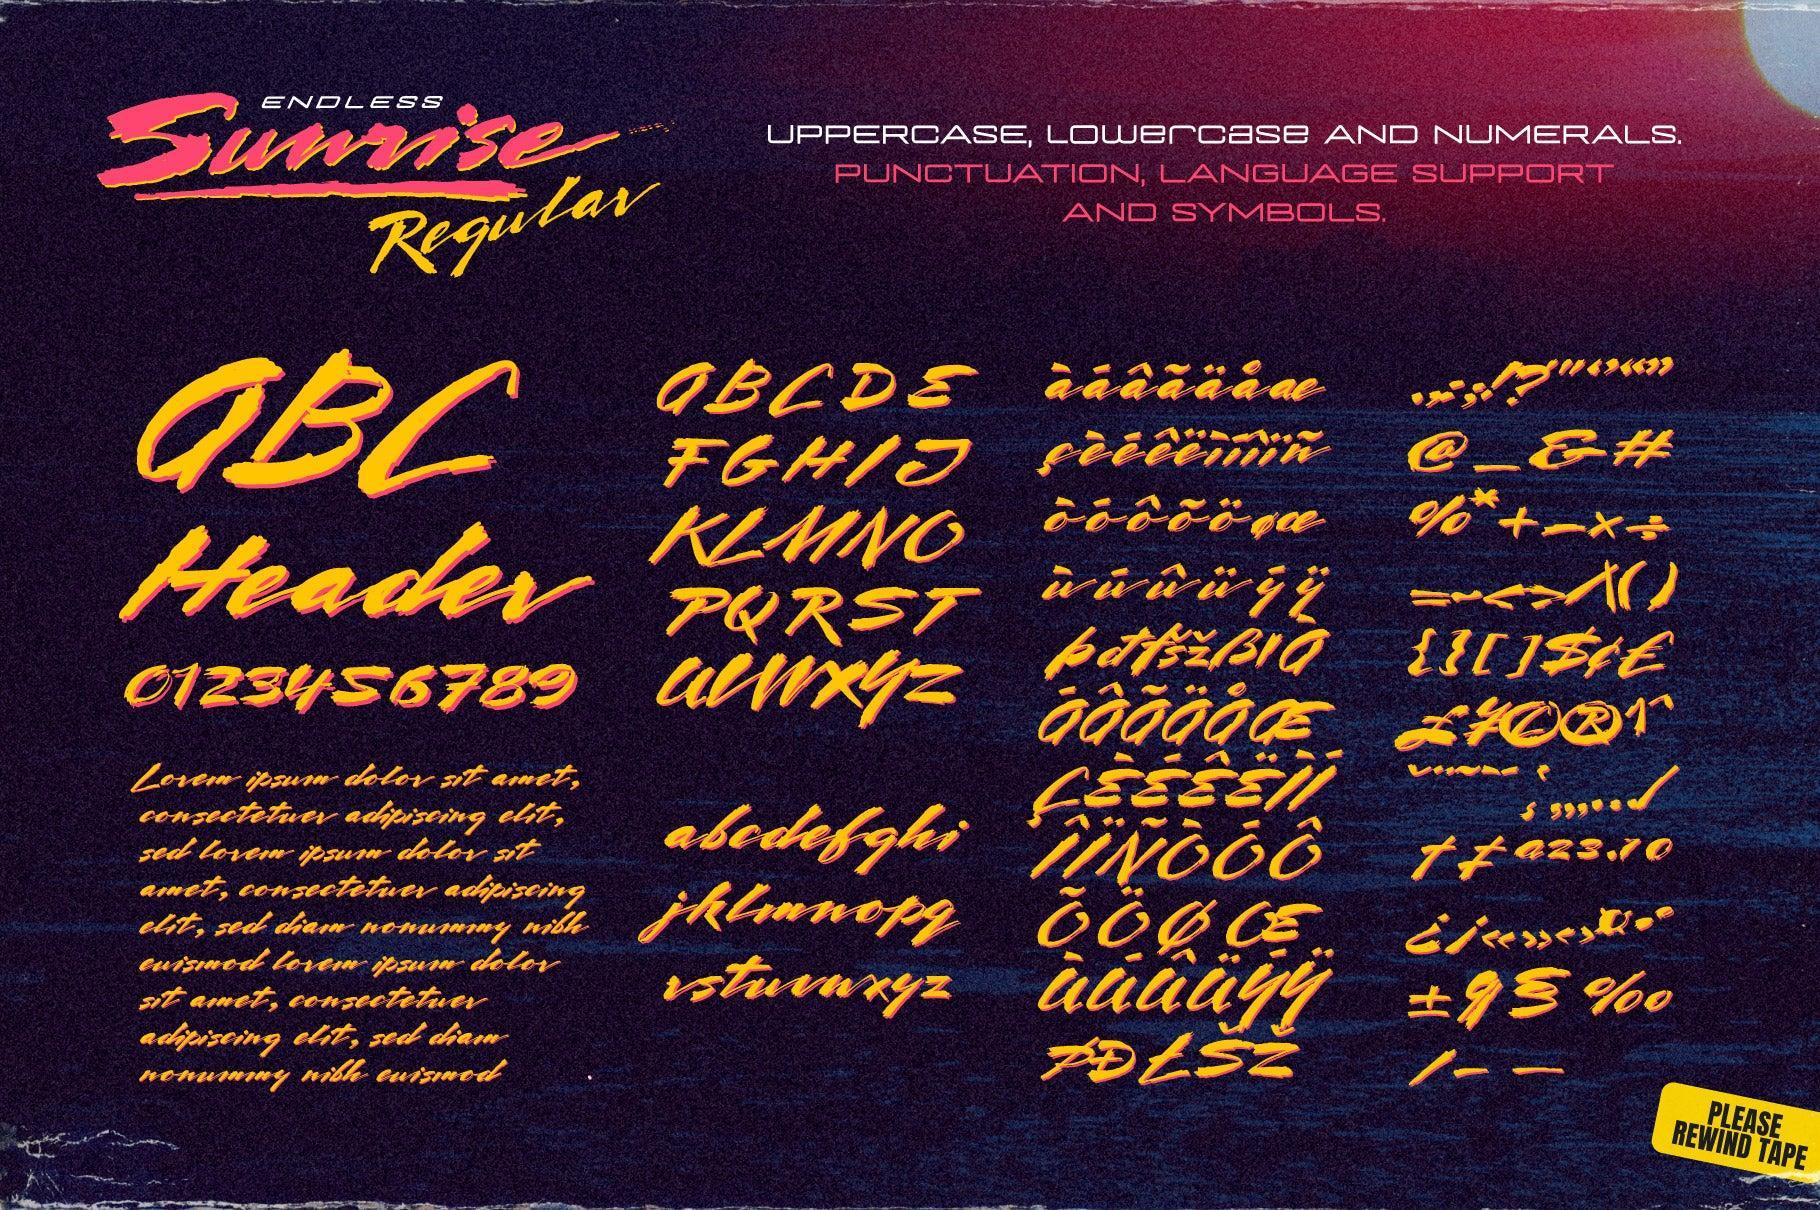 ENDLESS
Sunrise
Regular
UPPERCASE, Lowercase AND NUMERALS.
PUNCTUATION, LANGUAGE SUPPORT
AND SYMBOLS.
ABC
Header
0123456789
Lorem ipsum dolor sit amet,
consectetuer adipiscing elit,
sed lorem ipsum dolor sit
amet, consectetuer adipiscing
elit, sed diam nonummy nibh
euismod lorem ipsum dolor
sit amet, consectetuer
adipiscing elit, sed diam
nonummy nibh euismod
ABCDE
FGHIJ
KLMNO
PQRST
UVWXYZ
abcdefghi
jklmnopq
rstuvwxyz
àáâãäåæ
çèéêëìíîïñ
òóôõöøœ
ùúûüýÿ
ÇÈÉÊËÌÍ
ÎÏÑÒÓÔ
ÕÖØŒ
ÙÚÛÜÝŸ
ÞĐŁŠŽ
@_&#
%*+−×÷
=~<>/\()
{}[]$¢€
£¥©®
±¶§‰
PLEASE
REWIND TAPE